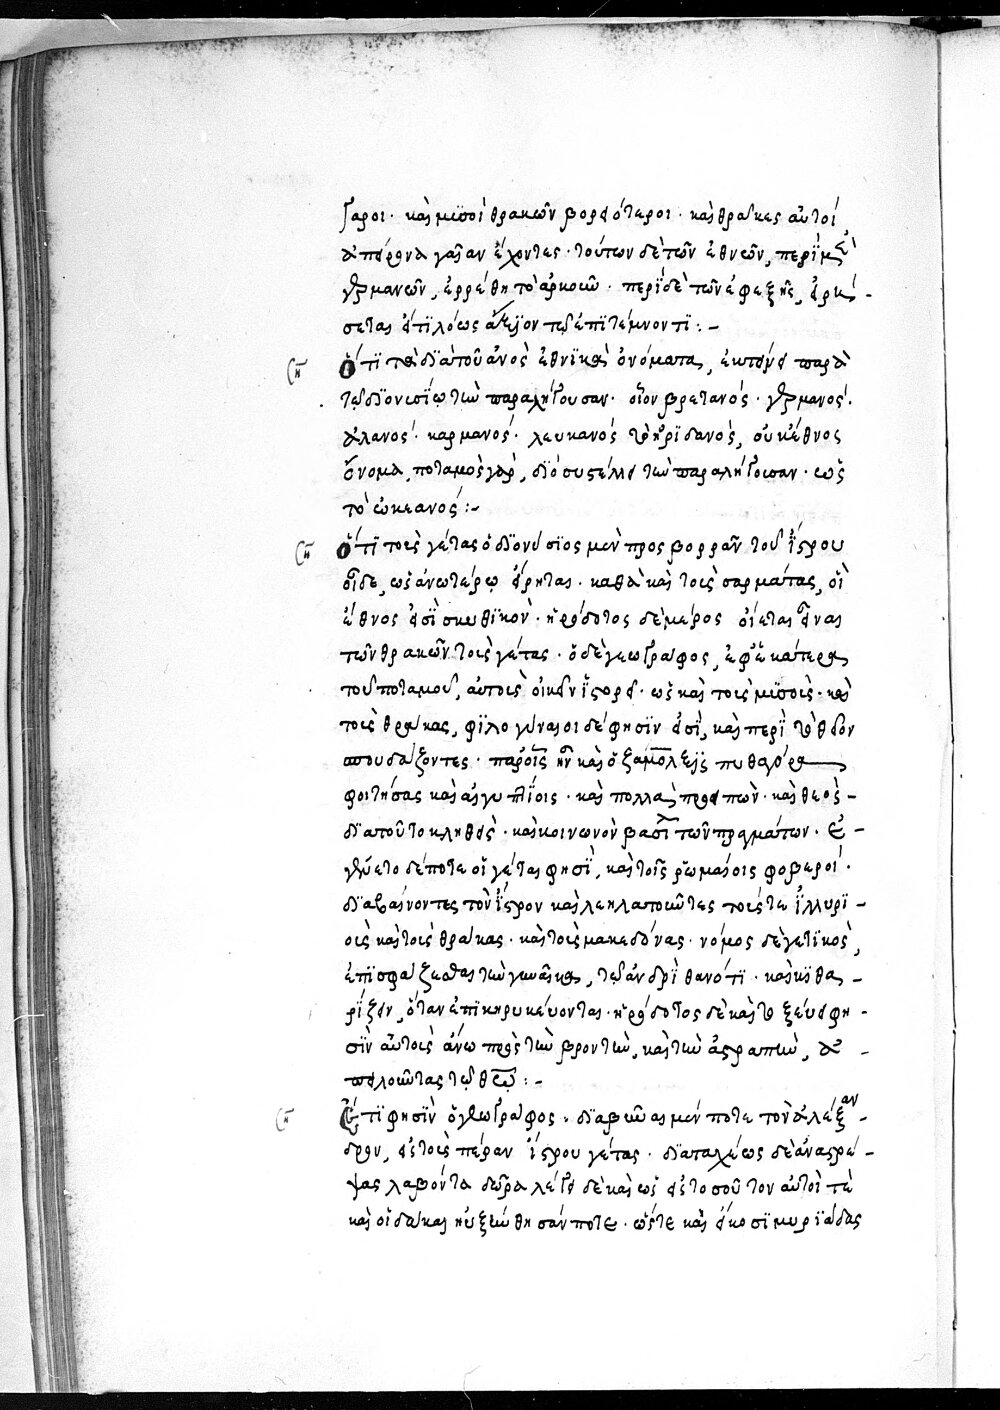 γαροι· καὶ μυσοὶ θρακῶν βορειότεροι· καὶ θρᾶκες αὐτοὶ
ἀπόρονα γαῖαν ἔχοντες· τούτων δὲ τῶν ἐθνῶν, περὶ μὲν
γερμανῶν, ἐρρέθη τὸ ἀρκοῦν· περὶ δὲ τῶν ἐφεξῆς, εἰρή-
σεται εἴ τι λόγου ἄξιον τῷ ἐπιτέμνοντι:-
ση Ὅτι τὰ διὰ τοῦ ανος ἐθνικὰ ὀνόματα, ἐκτείνει παρὰ
τῷ διονυσίῳ τὴν παραλήγουσαν· οἷον βρετανός· γερμανός·
ἀλανός· καρμανός· λευκανός τὸ ἠριδανός, οὐκ ἔθνος
ὄνομα, ποταμὸς γὰρ, διὸ συστέλλει τὴν παραλήγουσαν· ὡς
τὸ ὠκεανός:-
ση Ὅτι τοὺς γέτας ὁ διονύσιος μὲν πρὸς βορρᾶν τοῦ ἴστρου
οἶδε, ὡς ἀνωτέρω εἴρηται· καθὰ καὶ τοὺς σαρμάτας, οἳ
ἔθνος εἰσὶ σκυθικόν· ἡρόδοτος δὲ μέρος οἴεται εἶναι
τῶν θρακῶν τοὺς γέτας· ὁ δὲ γεωγράφος, ἐφ' ἑκάτερα
τοῦ ποταμοῦ, αὐτοὺς οἰκεῖν ἱστορεῖ· ὡς καὶ τοὺς μυσούς· καὶ
τοὺς θρᾶκας, φιλογύναιοι δέ φησιν εἰσὶ, καὶ περὶ τὸ θεῖον
σπουδάζοντες· παρ' οἷς ἦν καὶ ὁ ζάμολξις πυθαγόρᾳ
φοιτήσας καὶ αἰγυπτίοις· καὶ πολλὰ προειπών· καὶ θεὸς-
διὰ τοῦτο κληθείς· καὶ κοινωνὸν βασι τῶν πραγμάτων· ἐ-
γένετο δέ ποτε οἱ γέται φησὶ, καὶ τοῖς ῥωμαίοις φοβεροί·
διαβαίνοντες τὸν ἴστρον καὶ λεηλατοῦντες τούς τε ἰλλυρι-
οὺς καὶ τοὺς θρᾶκας· καὶ τοὺς μακεδόνας· νόμος δὲ γετικὸς,
ἐπισφάζεσθαι τὴν γυναῖκα, τῷ ἀνδρὶ θανόντι· καὶ κιθα-
ρίζειν, ὅταν ἐπικηρυκεύονται· ἡρόδοτος δὲ καὶ τοξεύειν φη-
σὶν αὐτοὺς ἄνω πρὸς τὴν βροντὴν, καὶ τὴν ἀστραπὴν, ἀ-
πειλοῦντας τῷ θεῷ:-
ση Ὅτι φησὶν ὁ γεωγράφος· διαβῶναι μέν ποτε τὸν ἀλέξαν-
δρον, εἰς τοὺς πέραν ἴστρου γέτας· διὰ ταχέως δὲ ἀναστρέ-
ψαι λαβόντα δῶρα λέγει δὲ καὶ ὡς εἰς τοσοῦτον αὐτοί τε
καὶ οἱ δάκαι ηὐξώθησάν ποτε· ὥστε καὶ εἴκοσι μυριάδας